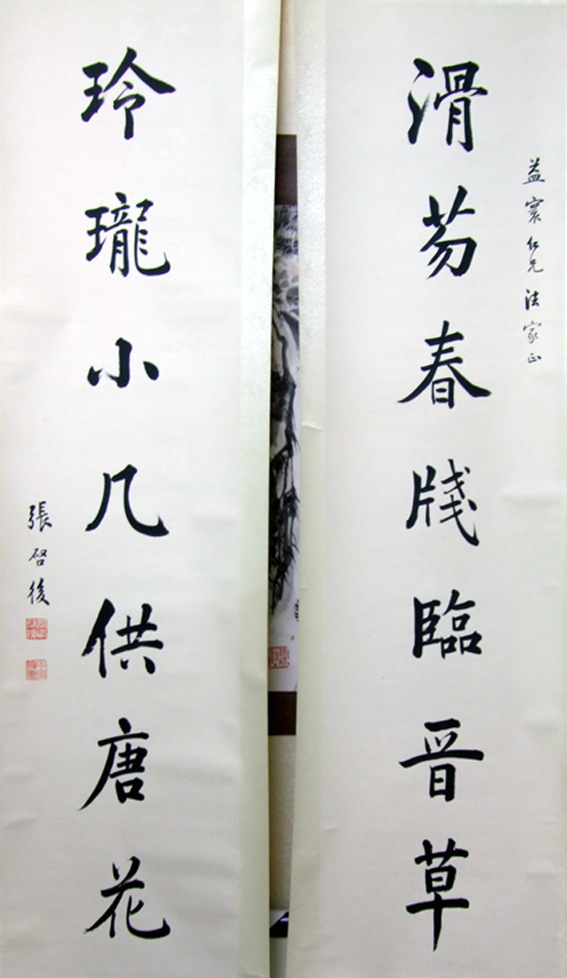 益寰仁兄法家正
滑芴春牋臨晋草
玲瓏小几供唐花
張啓後